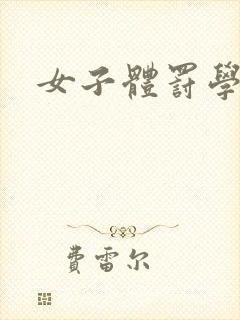 女子體罰學
費雷尔